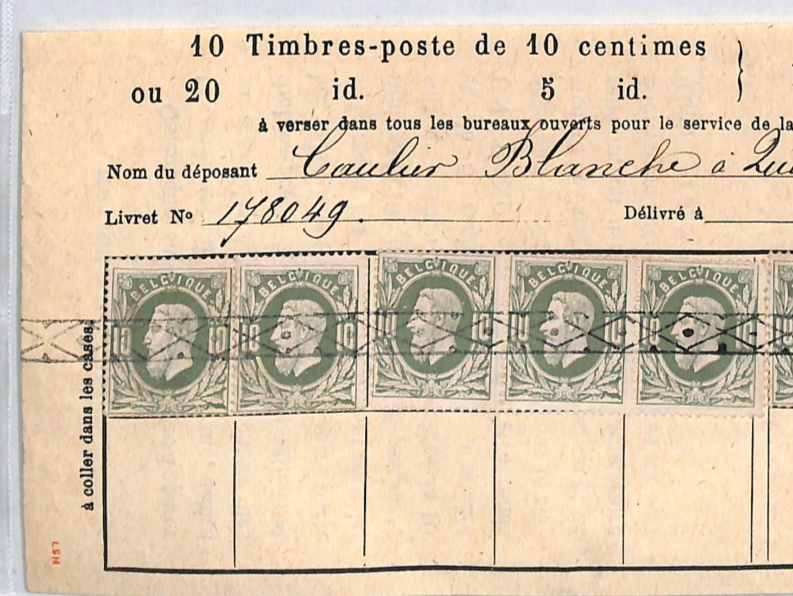 10 Timbres-poste de 10 centimes
ou 20 id. 5 id.
à verser dans tous les bureaux ouverts pour le service de la
Nom du déposant Caulier Blanche à
Livret Nº 178049.
Délivré à
à coller dans les cases.
BELGIQUE BELGIQUE BELGIQUE BELGIQUE BELGIQUE
10 10 10 10 10 10 10 10 10
LSH